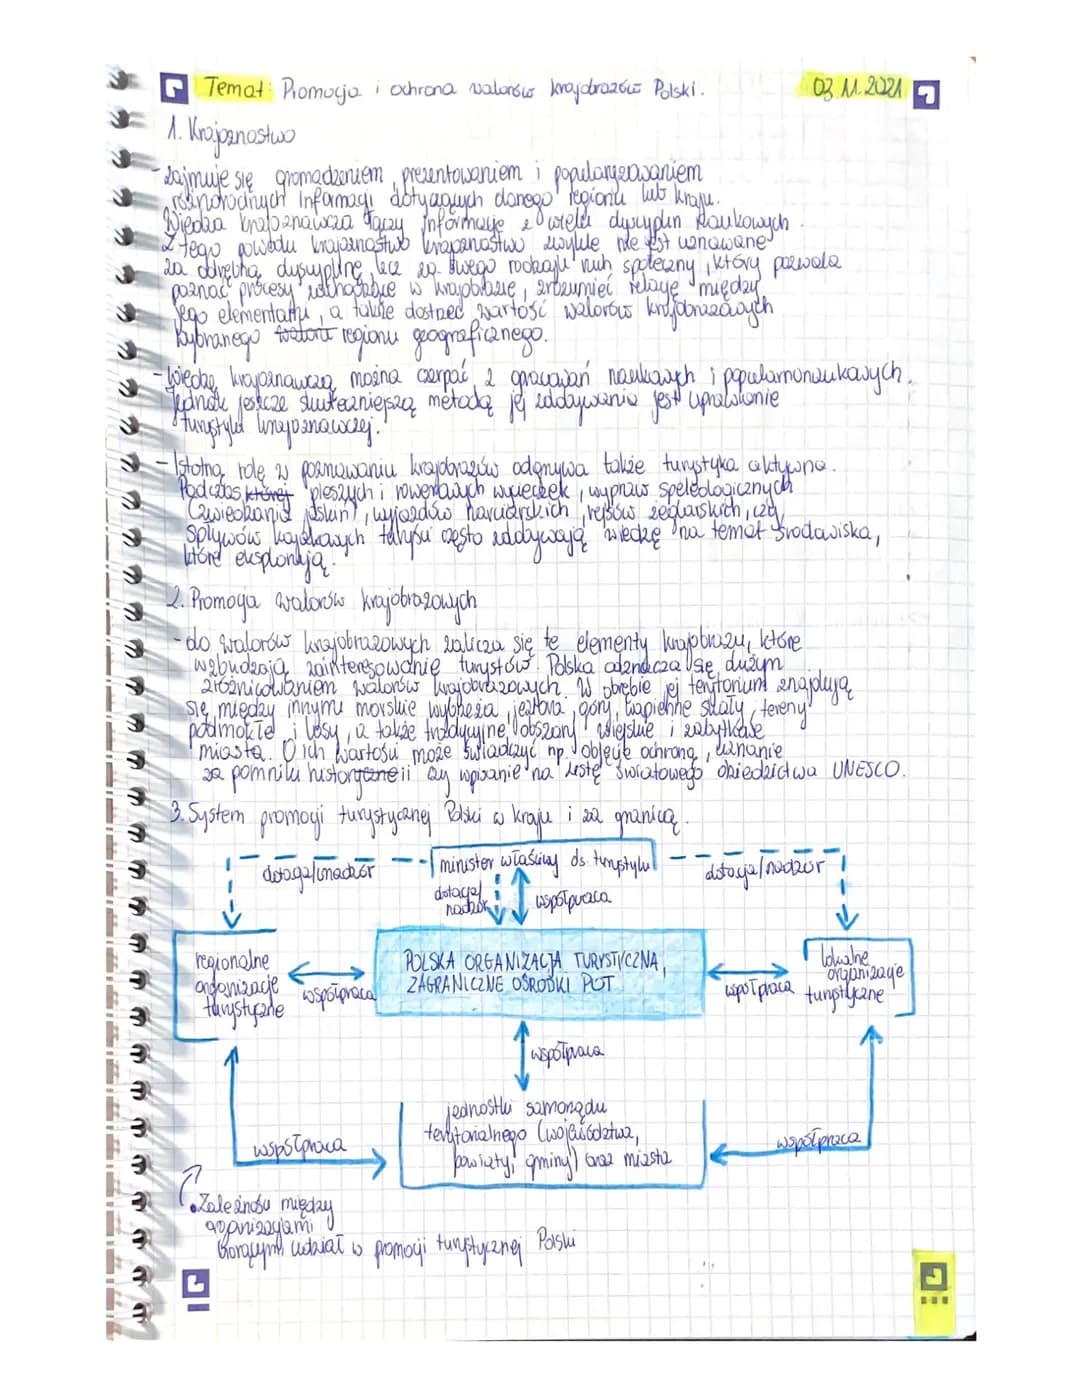 Temat: Promocja i ochrona walorów krajobrazów Polski. 03.11.2021
1. Krajoznastwo
- zajmuje się gromadzeniem, prezentowaniem i popularyzowaniem
różnorodnych informacji dotyczących danego regionu lub kraju.
Wiedza krajoznawcza łączy informacje z wielu dyscyplin naukowych.
Z tego powodu krajoznastwo krajoznastwo zwykle nie jest uznawane
za odrębną dyscyplinę, lecz za swego rodzaju ruch społeczny, który pozwala
poznać procesy zachodzące w krajobrazie, zrozumieć relacje między
jego elementami, a także dostrzec wartość walorów krajobrazowych
wybranego regionu geograficznego.
- Wiedzę krajoznawczą można czerpać z opracowań naukowych i popularnonaukowych.
Jednak jeszcze skuteczniejszą metodą jej zdobywania jest uprawianie
turystyki krajoznawczej.
- Istotną rolę w poznawaniu krajobrazów odgrywa także turystyka aktywna.
Podczas której pieszych i rowerowych wycieczek, wypraw speleologicznych
(zwiedzania jaskiń), wyjazdów narciarskich, rejsów żeglarskich, czy
spływów kajakowych turyści często zdobywają wiedzę na temat środowiska,
które eksplorują.
2. Promocja walorów krajobrazowych
- do walorów krajobrazowych zalicza się te elementy krajobrazu, które
wzbudzają zainteresowanie turystów. Polska odznacza się dużym
zróżnicowaniem walorów krajobrazowych. W obrębie jej terytorium znajdują
się między innymi morskie wybrzeża, jeziora, góry, wapienne skały, tereny
podmokłe i lasy, a także tradycyjne obszary wiejskie i zabytkowe
miasta. O ich wartości może świadczyć np. objęcie ochroną, uznanie
za pomniki historii czy wpisanie na listę światowego dziedzictwa UNESCO.
3. System promocji turystycznej Polski w kraju i za granicą.
dotacja/nadzór minister właściwy ds. turystyki dotacja/nadzór
dotacja/ współpraca
nadzór
regionalne organizacje turystyczne
współpraca
POLSKA ORGANIZACJA TURYSTYCZNA,
ZAGRANICZNE OŚRODKI POT
współpraca
lokalne organizacje turystyczne
współpraca
jednostki samorządu
terytorialnego (województwa,
powiaty, gminy) oraz miasta
współpraca
współpraca
• Zależności między
organizacjami
biorącymi udział w promocji turystycznej Polski